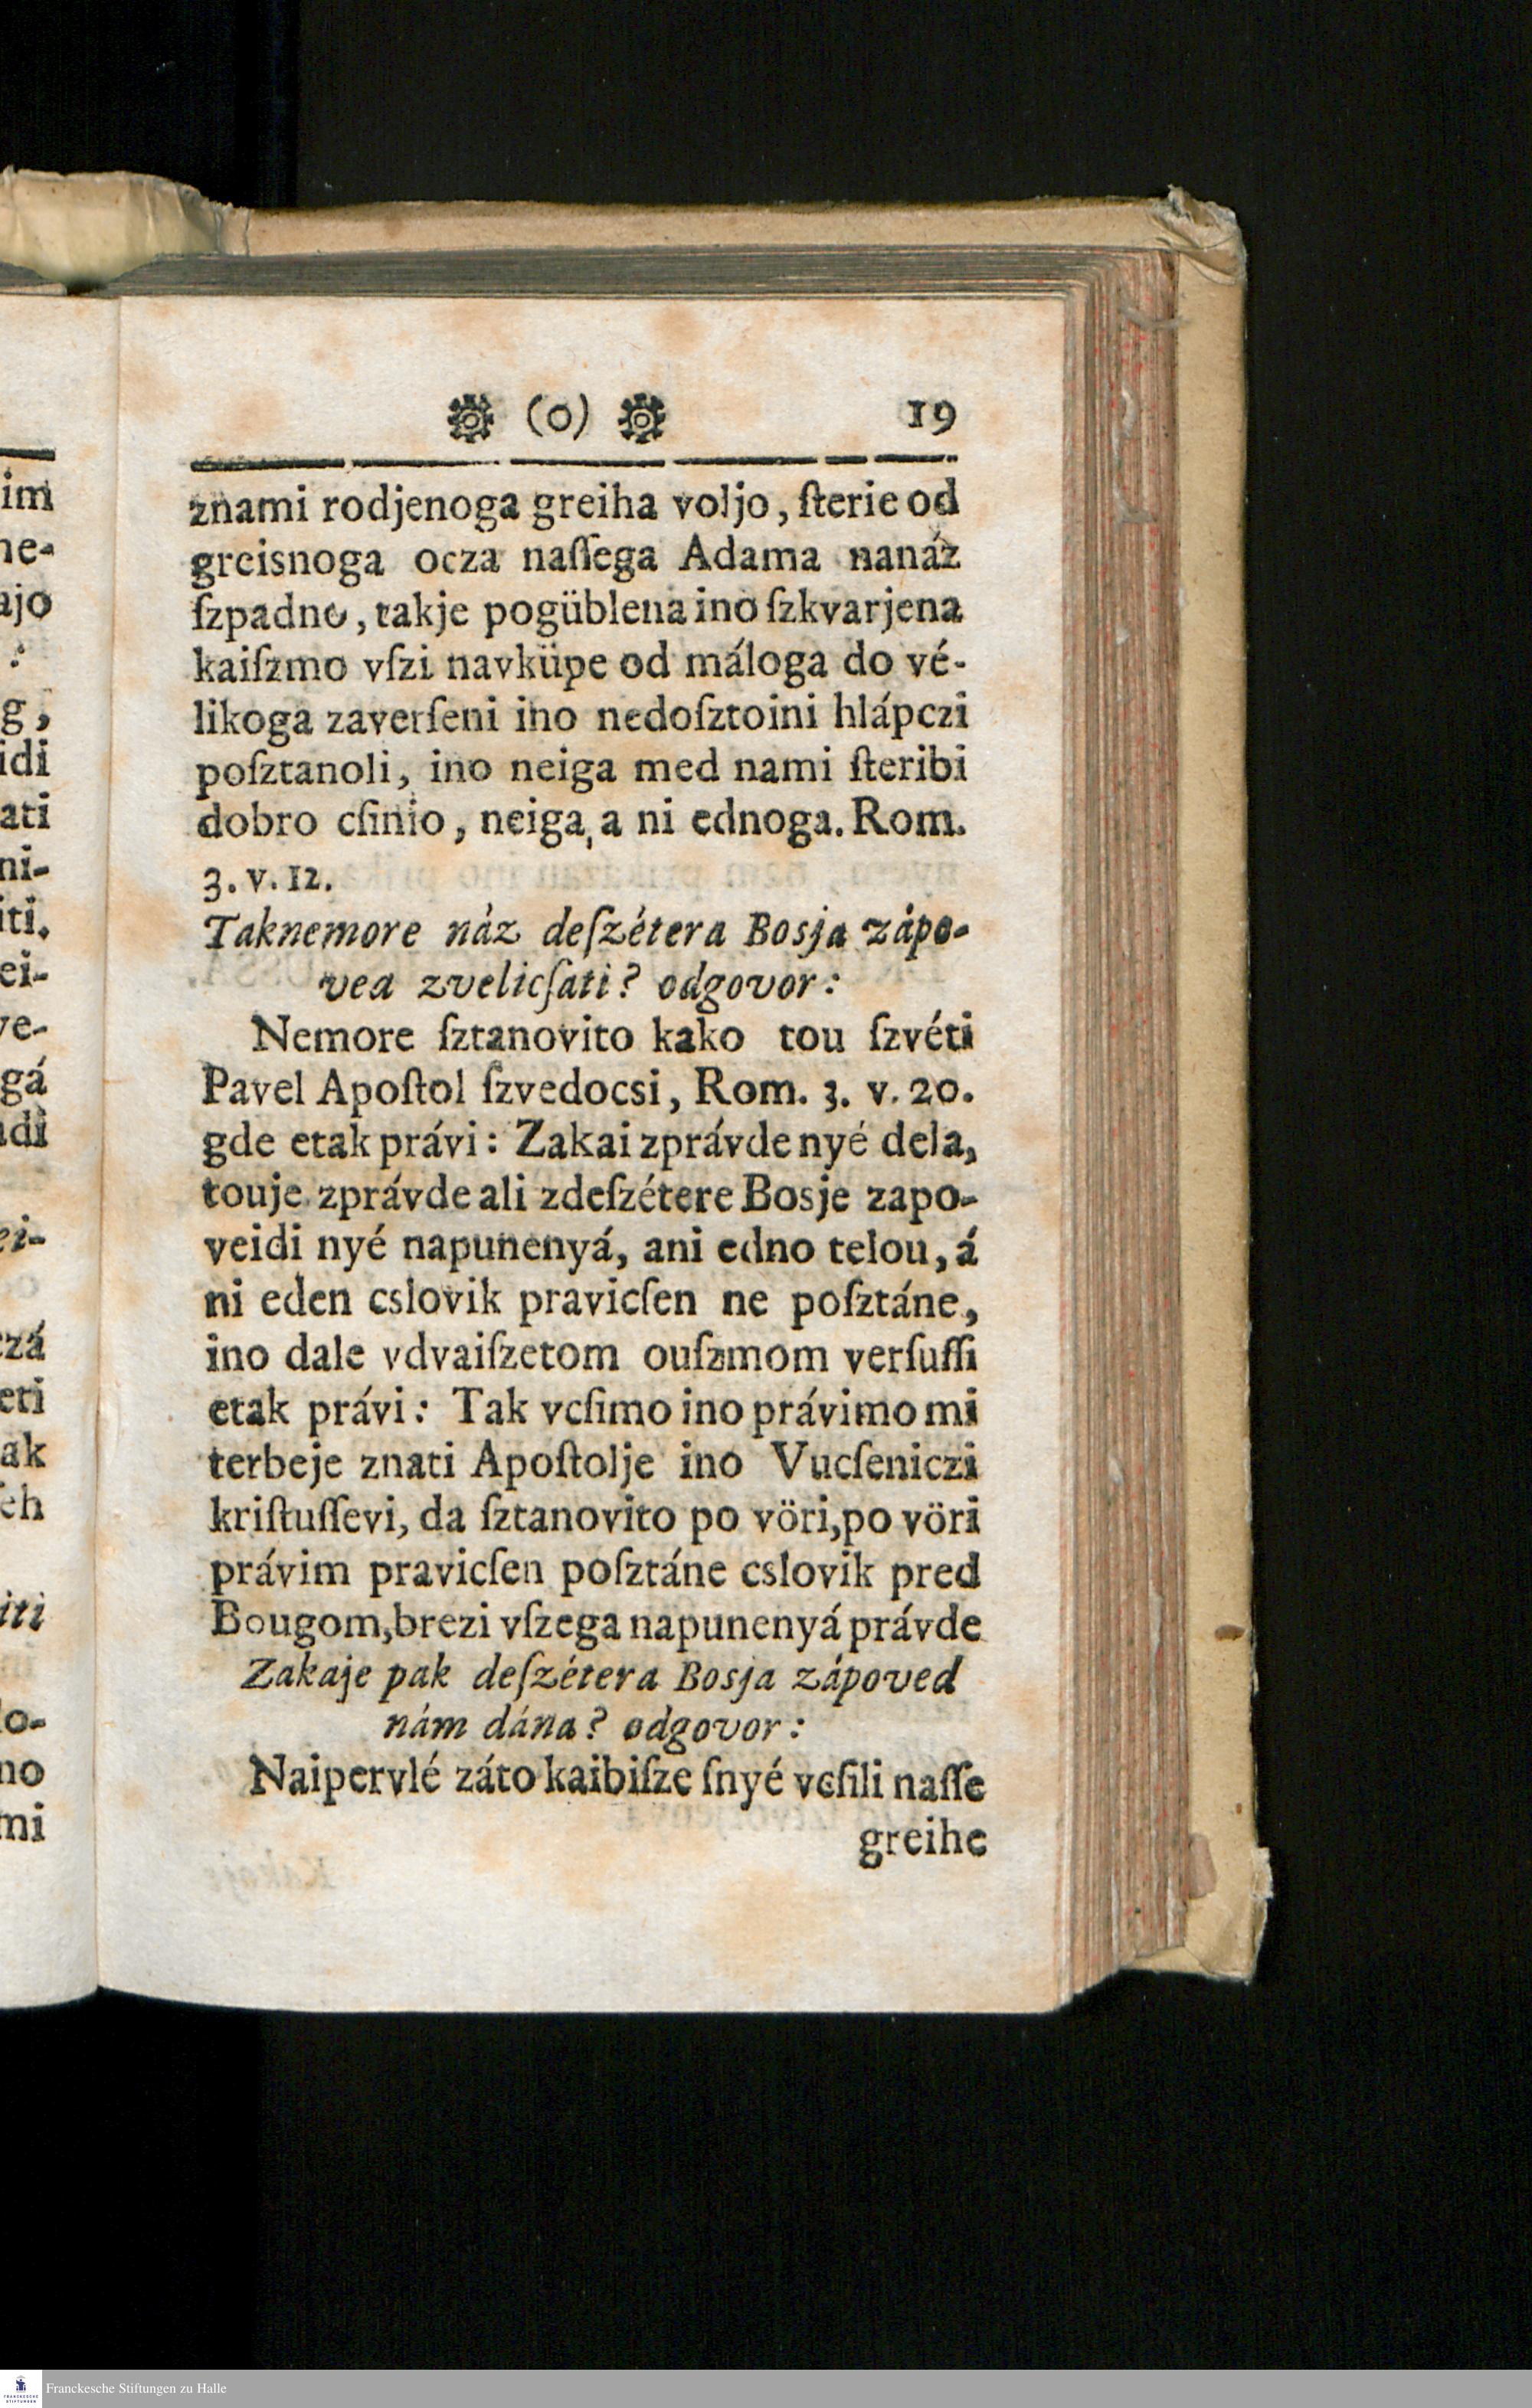 (o) 19
znami rodjenoga greiha voljo, ſterie od
greisnoga ocza naſſega Adama nanáz
ſzpadno, takje pogüblena ino ſzkvarjena
kaiſzmo vſzi navküpe od máloga do vé-
likoga zaverſeni ino nedoſztoini hlápczi
poſztanoli, ino neiga med nami ſteribi
dobro cſinio, neiga, a ni ednoga. Rom.
3. v. 12.
Taknemore náz deſzétera Bosja zápo-
vea zvelicſati? odgovor:
Nemore ſztanovito kako tou ſzvéti
Pavel Apoſtol ſzvedocsi, Rom. 3. v. 20.
gde etak právi: Zakai zprávde nyé dela,
touje zprávde ali zdeſzétere Bosje zapo-
veidi nyé napunenyá, ani edno telou, á
ni eden cslovik pravicſen ne poſztáne,
ino dale vdvaiſzetom ouſzmom verſuſſi
etak právi: Tak vcſimo ino právimo mi
terbeje znati Apoſtolje ino Vucſeniczi
kriſtuſſevi, da ſztanovito po vöri, po vöri
právim pravicſen poſztáne cslovik pred
Bougom, brezi vſzega napunenyá právde
Zakaje pak deſzétera Bosja zápoved
nám dána? odgovor:
Naipervlé záto kaibiſze ſnyé vcſili naſſe
greihe
im
ne-
ajo
:
g,
idi
ati
ni-
iti.
ei-
ve-
gá
idi
ei-
czá
eti
ak
ſeh
iti
lo-
no
mi
Franckesche Stiftungen zu Halle